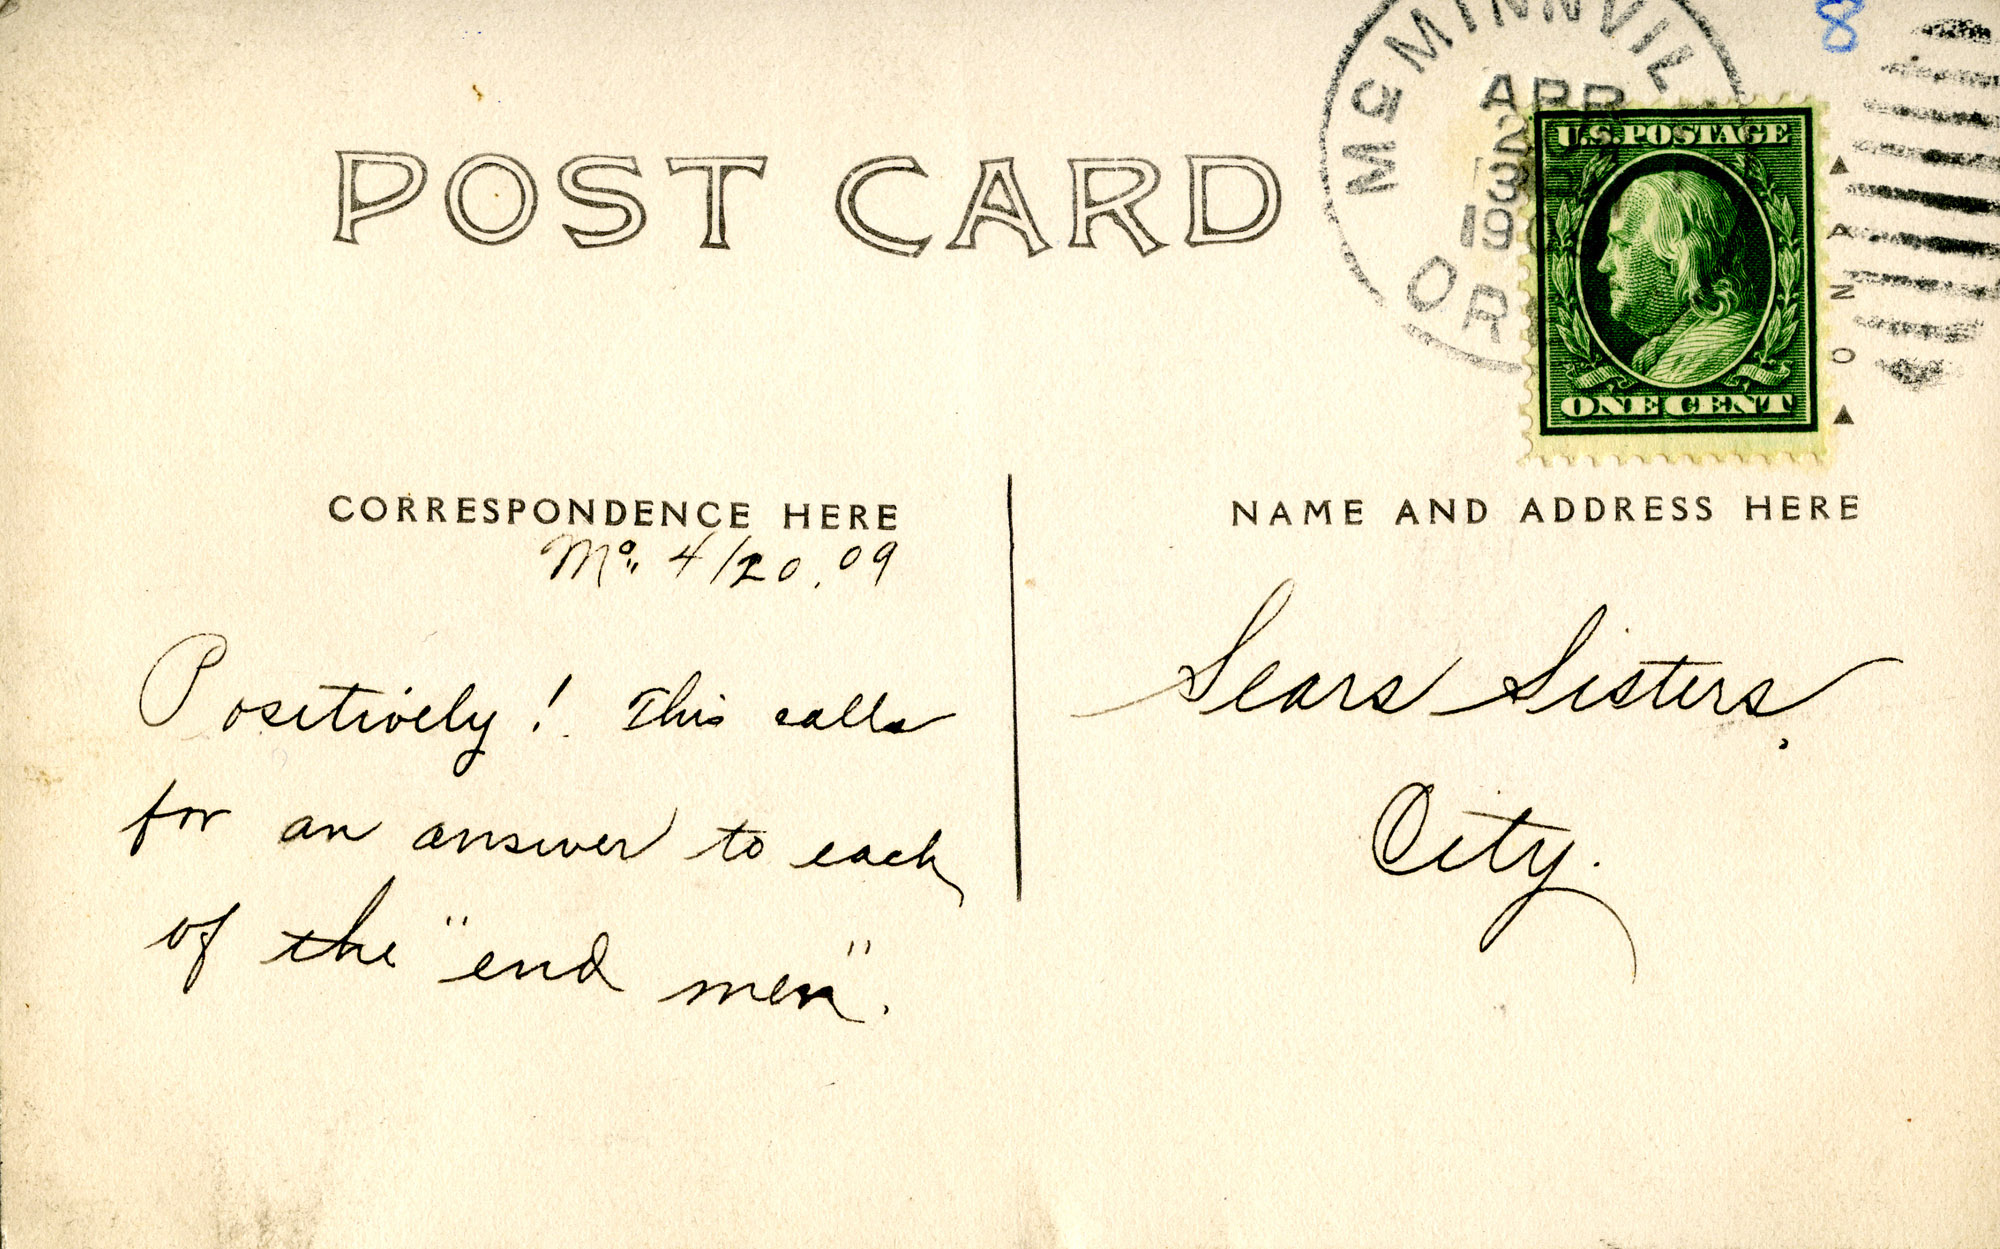 POST CARD
8
McMINNVIL
APR
2
1909
ORE
U.S. POSTAGE
ONE CENT
ANO
CORRESPONDENCE HERE
NAME AND ADDRESS HERE
Mc. 4/20.09
Positively! This calls
for an answer to each
of the "end men".
Sears Sisters,
City.